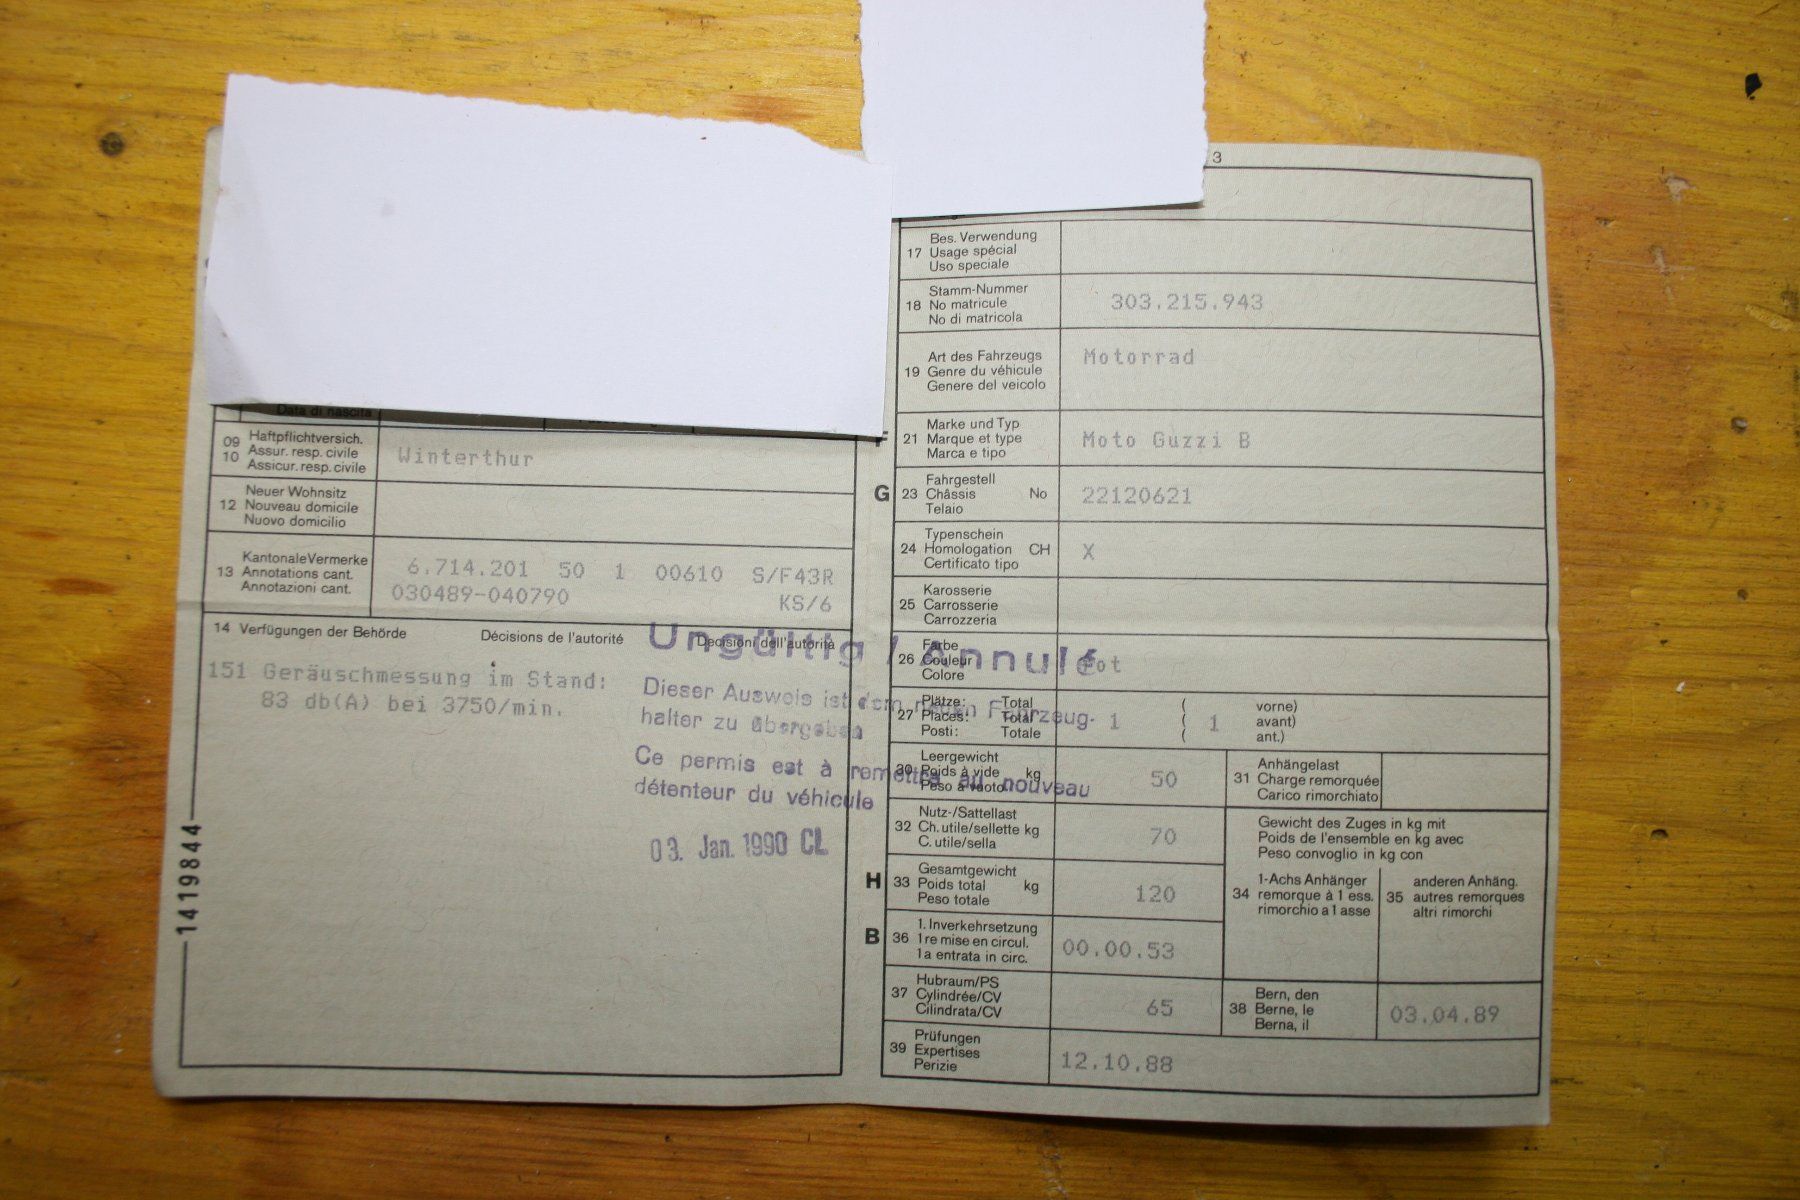 3
Data di nascita
09 Haftpflichtversich.
10 Assur. resp. civile
Assicur. resp. civile
Winterthur
12 Neuer Wohnsitz
Nouveau domicile
Nuovo domicilio
13 Kantonale Vermerke
Annotations cant.
Annotazioni cant.
6.714.201 50 1 00610 S/F43R
030489-040790 KS/6
14 Verfügungen der Behörde Décisions de l'autorité Decisioni dell'autorità
151 Geräuschmessung im Stand:
83 db(A) bei 3750/min.
Ungültig / Annulé
Dieser Ausweis ist dem neuen Fahrzeug-
halter zu übergeben
Ce permis est à remettre au nouveau
détenteur du véhicule
03. Jan. 1990 CL
1419844
17 Bes. Verwendung
Usage spécial
Uso speciale
18 Stamm-Nummer
No matricule
No di matricola
303.215.943
19 Art des Fahrzeugs
Genre du véhicule
Genere del veicolo
Motorrad
F 21 Marke und Typ
Marque et type
Marca e tipo
Moto Guzzi B
G 23 Fahrgestell
Châssis No
Telaio
22120621
24 Typenschein
Homologation CH
Certificato tipo
X
25 Karosserie
Carrosserie
Carrozzeria
26 Farbe
Couleur
Colore
rot
27 Plätze: Total
Places: Total
Posti: Totale
1 ( 1 vorne)
( avant)
( ant.)
30 Leergewicht
Poids à vide kg
Peso a vuoto
50
31 Anhängelast
Charge remorquée
Carico rimorchiato
32 Nutz-/Sattellast
Ch. utile/sellette kg
C. utile/sella
70
Gewicht des Zuges in kg mit
Poids de l'ensemble en kg avec
Peso convoglio in kg con
H 33 Gesamtgewicht
Poids total kg
Peso totale
120
34 1-Achs Anhänger
remorque à 1 ess.
rimorchio a 1 asse
35 anderen Anhäng.
autres remorques
altri rimorchi
B 36 1. Inverkehrsetzung
1re mise en circul.
1a entrata in circ.
00.00.53
37 Hubraum/PS
Cylindrée/CV
Cilindrata/CV
65
38 Bern, den
Berne, le
Berna, il
03.04.89
39 Prüfungen
Expertises
Perizie
12.10.88